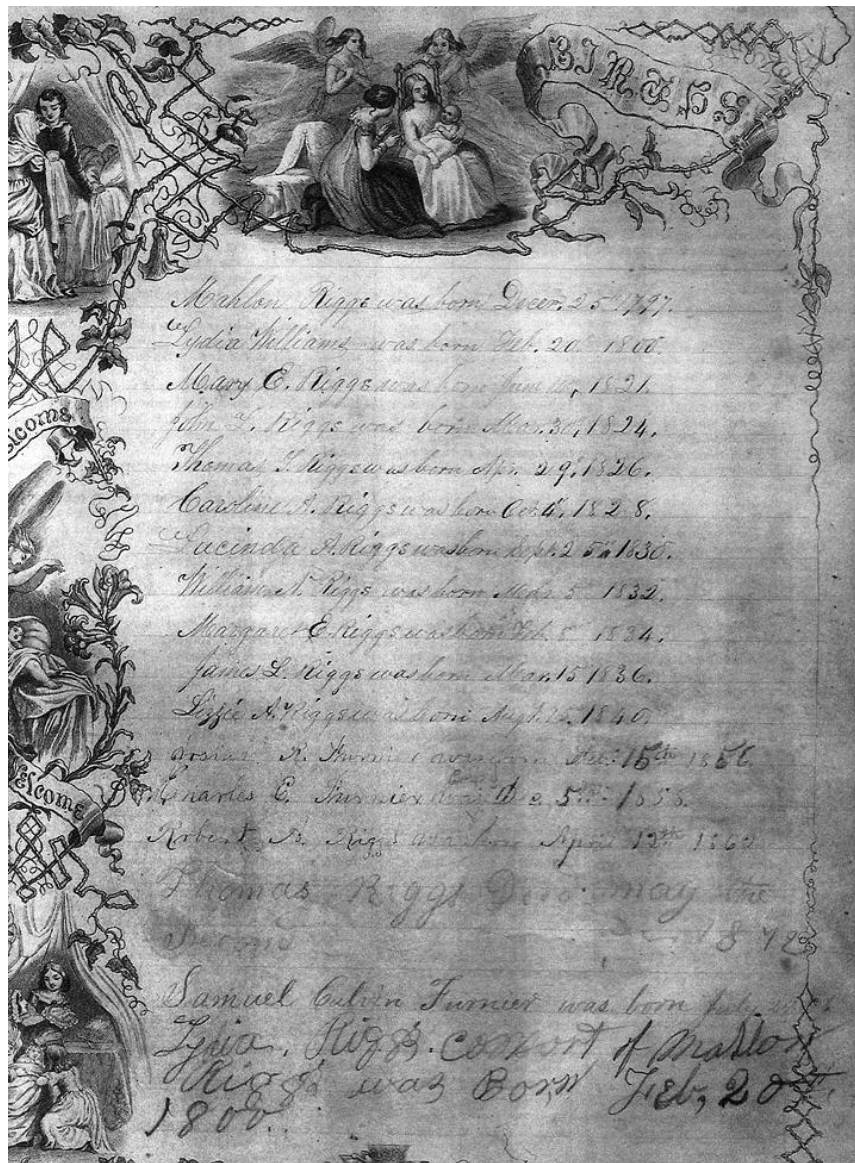 BIRTHS
Welcome
Welcome
Mahlon Riggs was born Decem. 25th 1797.
Lydia Williams was born Feb. 20th 1800.
Mary E. Riggs was born June 1821.
John L. Riggs was born Mar. 30, 1824.
Thomas T. Riggs was born Apr. 29th, 1826.
Caroline A. Riggs was born Oct. 4th, 1828.
Lucinda A. Riggs was born Sept. 25th 1830.
William N. Riggs was born Mar. 5th 1832.
Margaret E. Riggs was born Feb. 8th 1834.
James L. Riggs was born Mar. 15 1836.
Lizzie A. Riggs was born Augt. 1840.
R. Furnier was born 15th 1856
Charles E. Furnier was Born Dec 5th 1858.
Robert Riggs was born April 12th
Thomas Riggs Died may the
Second 1872
Samuel Calvin Furnier was born July
Lydia. Riggs. consort of Mahlon
Riggs was Born Feb, 20th.
1800.